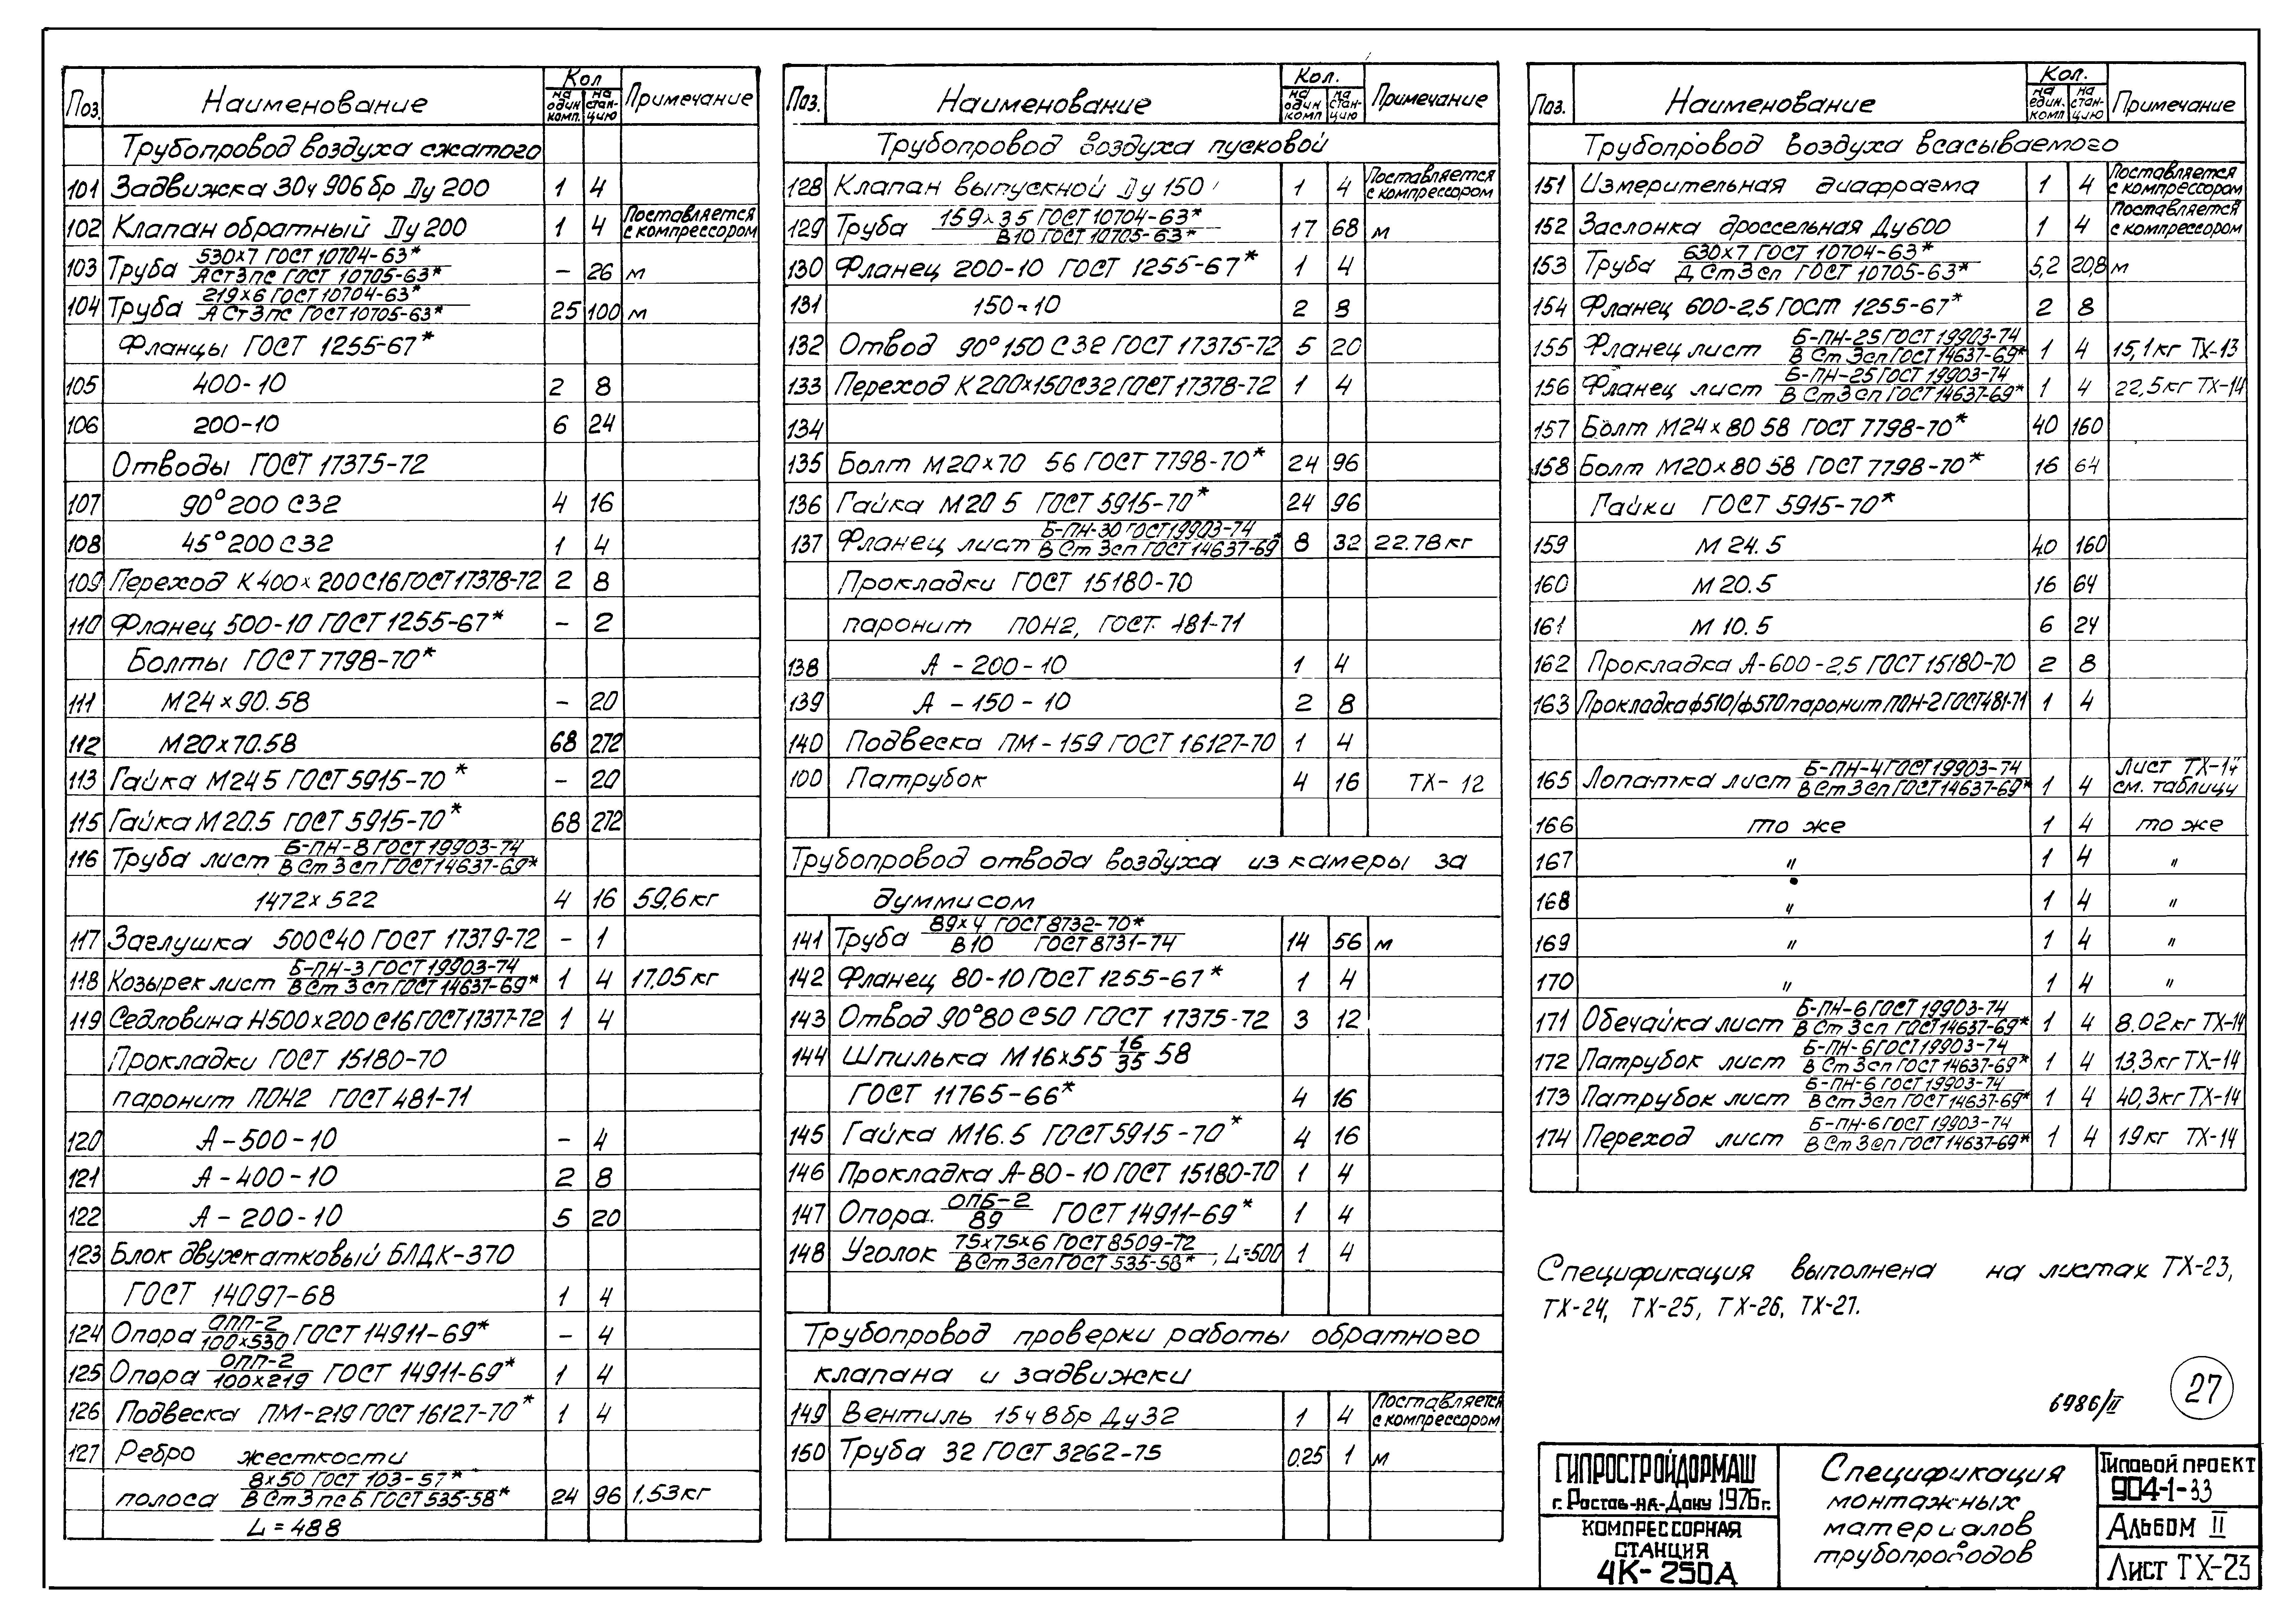 Поз. Наименование Кол на один комп. на станцию Примечание
Трубопровод воздуха сжатого
101 Задвижка 30ч 906бр Ду 200 1 4
102 Клапан обратный Ду 200 1 4 Поставляется с компрессором
103 Труба 530х7 ГОСТ 10704-63* / АСт3пс ГОСТ 10705-63* – 26 м
104 Труба 219х6 ГОСТ 10704-63* / АСт3пс ГОСТ 10705-63* 25 100 м
Фланцы ГОСТ 1255-67*
105 400-10 2 8
106 200-10 6 24
Отводы ГОСТ 17375-72
107 90° 200 С32 4 16
108 45° 200 С32 1 4
109 Переход К 400х200 С16 ГОСТ 17378-72 2 8
110 Фланец 500-10 ГОСТ 1255-67* – 2
Болты ГОСТ 7798-70*
111 М24х90.58 – 20
112 М20х70.58 68 272
113 Гайка М24 5 ГОСТ 5915-70* – 20
115 Гайка М20.5 ГОСТ 5915-70* 68 272
116 Труба лист Б-ПН-8 ГОСТ 19903-74 / ВСт3сп ГОСТ 14637-69*
1472х522 4 16 59,6 кг
117 Заглушка 500С40 ГОСТ 17379-72 – 1
118 Козырек лист Б-ПН-3 ГОСТ 19903-74 / ВСт3сп ГОСТ 14637-69* 1 4 17,05 кг
119 Седловина Н500х200 С16 ГОСТ 17377-72 1 4
Прокладки ГОСТ 15180-70
паронит ПОН2 ГОСТ 481-71
120 А-500-10 – 4
121 А-400-10 2 8
122 А-200-10 5 20
123 Блок двужкатковый БЛДК-370
ГОСТ 14097-68 1 4
124 Опора ОПП-2 / 100х530 ГОСТ 14911-69* – 4
125 Опора ОПП-2 / 100х219 ГОСТ 14911-69* 1 4
126 Подвеска ПМ-219 ГОСТ 16127-70* 1 4
127 Ребро жесткости
полоса 8х50 ГОСТ 103-57* / ВСт3пс Б ГОСТ 535-58* 24 96 1,53 кг
L=488
Поз. Наименование Кол. на один комп на станцию Примечание
Трубопровод воздуха пусковой
128 Клапан выпускной Ду 150 1 4 Поставляется с компрессором
129 Труба 159х3,5 ГОСТ 10704-63* / В10 ГОСТ 10705-63* 17 68 м
130 Фланец 200-10 ГОСТ 1255-67* 1 4
131 150-10 2 8
132 Отвод 90° 150 С32 ГОСТ 17375-72 5 20
133 Переход К 200х150С32 ГОСТ 17378-72 1 4
134
135 Болт М20х70 56 ГОСТ 7798-70* 24 96
136 Гайка М20 5 ГОСТ 5915-70* 24 96
137 Фланец лист Б-ПН-30 ГОСТ 19903-74 / ВСт3сп ГОСТ 14637-69* 8 32 22.78 кг
Прокладки ГОСТ 15180-70
паронит ПОН2, ГОСТ 481-71
138 А-200-10 1 4
139 А-150-10 2 8
140 Подвеска ПМ-159 ГОСТ 16127-70 1 4
100 Патрубок 4 16 ТХ-12
Трубопровод отвода воздуха из камеры за
думмисом
141 Труба 89х4 ГОСТ 8732-70* / В10 ГОСТ 8731-74 14 56 м
142 Фланец 80-10 ГОСТ 1255-67* 1 4
143 Отвод 90°80 С50 ГОСТ 17375-72 3 12
144 Шпилька М16х55 16/35 58
ГОСТ 11765-66* 4 16
145 Гайка М16.5 ГОСТ 5915-70* 4 16
146 Прокладка А-80-10 ГОСТ 15180-70 1 4
147 Опора ОПБ-2 / 89 ГОСТ 14911-69* 1 4
148 Уголок 75х75х6 ГОСТ 8509-72 / ВСт3сп ГОСТ 535-58*, L=500 1 4
Трубопровод проверки работы обратного
клапана и задвижки
149 Вентиль 15ч 8бр Ду32 1 4 Поставляется с компрессором
150 Труба 32 ГОСТ 3262-75 0,25 1 м
Поз. Наименование Кол. на един. комп на станцию Примечание
Трубопровод воздуха всасываемого
151 Измерительная диафрагма 1 4 Поставляется с компрессором
152 Заслонка дроссельная Ду600 1 4 Поставляется с компрессором
153 Труба 630х7 ГОСТ 10704-63* / Д Ст3сп ГОСТ 10705-63* 5,2 20,8 м
154 Фланец 600-2,5 ГОСТ 1255-67* 2 8
155 Фланец лист Б-ПН-25 ГОСТ 19903-74 / ВСт3сп ГОСТ 14637-69* 1 4 15,1 кг ТХ-13
156 Фланец лист Б-ПН-25 ГОСТ 19903-74 / ВСт3сп ГОСТ 14637-69* 1 4 22,5 кг ТХ-14
157 Болт М24х80 58 ГОСТ 7798-70* 40 160
158 Болт М20х80 58 ГОСТ 7798-70* 16 64
Гайки ГОСТ 5915-70*
159 М 24.5 40 160
160 М 20.5 16 64
161 М 10.5 6 24
162 Прокладка А-600-2,5 ГОСТ 15180-70 2 8
163 Прокладка ф510/ф570 паронит ПОН-2 ГОСТ 481-71 1 4
165 Лопатка лист Б-ПН-4 ГОСТ 19903-74 / ВСт3сп ГОСТ 14637-69* 1 4 Лист ТХ-14 см. таблицу
166 то же 1 4 то же
167 " 1 4 "
168 " 1 4 "
169 " 1 4 "
170 " 1 4 "
171 Обечайка лист Б-ПН-6 ГОСТ 19903-74 / ВСт3сп ГОСТ 14637-69* 1 4 8.02 кг ТХ-14
172 Патрубок лист Б-ПН-6 ГОСТ 19903-74 / ВСт3сп ГОСТ 14637-69* 1 4 13,3 кг ТХ-14
173 Патрубок лист Б-ПН-6 ГОСТ 19903-74 / ВСт3сп ГОСТ 14637-69* 1 4 40,3 кг ТХ-14
174 Переход лист Б-ПН-6 ГОСТ 19903-74 / ВСт3сп ГОСТ 14637-69* 1 4 19 кг ТХ-14
Спецификация выполнена на листах ТХ-23,
ТХ-24, ТХ-25, ТХ-26, ТХ-27.
6986/II 27
ГИПРОСТРОЙДОРМАШ
г. Ростов-на-Дону 1976 г.
КОМПРЕССОРНАЯ
СТАНЦИЯ
4К-250А
Спецификация
монтажных
материалов
трубопроводов
Типовой проект
904-1-33
Альбом II
Лист ТХ-23